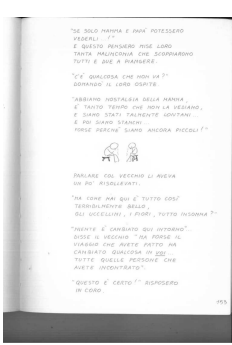 "SE SOLO MAMMA E PAPÀ POTESSERO
VEDERLI...!"
E QUESTO PENSIERO MISE LORO
TANTA MALINCONIA CHE SCOPPIARONO
TUTTI E DUE A PIANGERE.
"C'È QUALCOSA CHE NON VA?"
DOMANDÒ IL LORO OSPITE.
"ABBIAMO NOSTALGIA DELLA MAMMA,
È TANTO TEMPO CHE NON LA VEDIAMO,
E SIAMO STATI TALMENTE LONTANI...
E POI SIAMO STANCHI...
FORSE PERCHÉ SIAMO ANCORA PICCOLI!"
PARLARE COL VECCHIO LI AVEVA
UN PO' RISOLLEVATI.
"MA COME MAI QUI È TUTTO COSÌ
TERRIBILMENTE BELLO,
GLI UCCELLINI, I FIORI, TUTTO INSOMMA?"
"NIENTE È CAMBIATO QUI INTORNO"
DISSE IL VECCHIO "MA FORSE IL
VIAGGIO CHE AVETE FATTO HA
CAMBIATO QUALCOSA IN VOI...
TUTTE QUELLE PERSONE CHE
AVETE INCONTRATO".
"QUESTO È CERTO!" RISPOSERO
IN CORO.